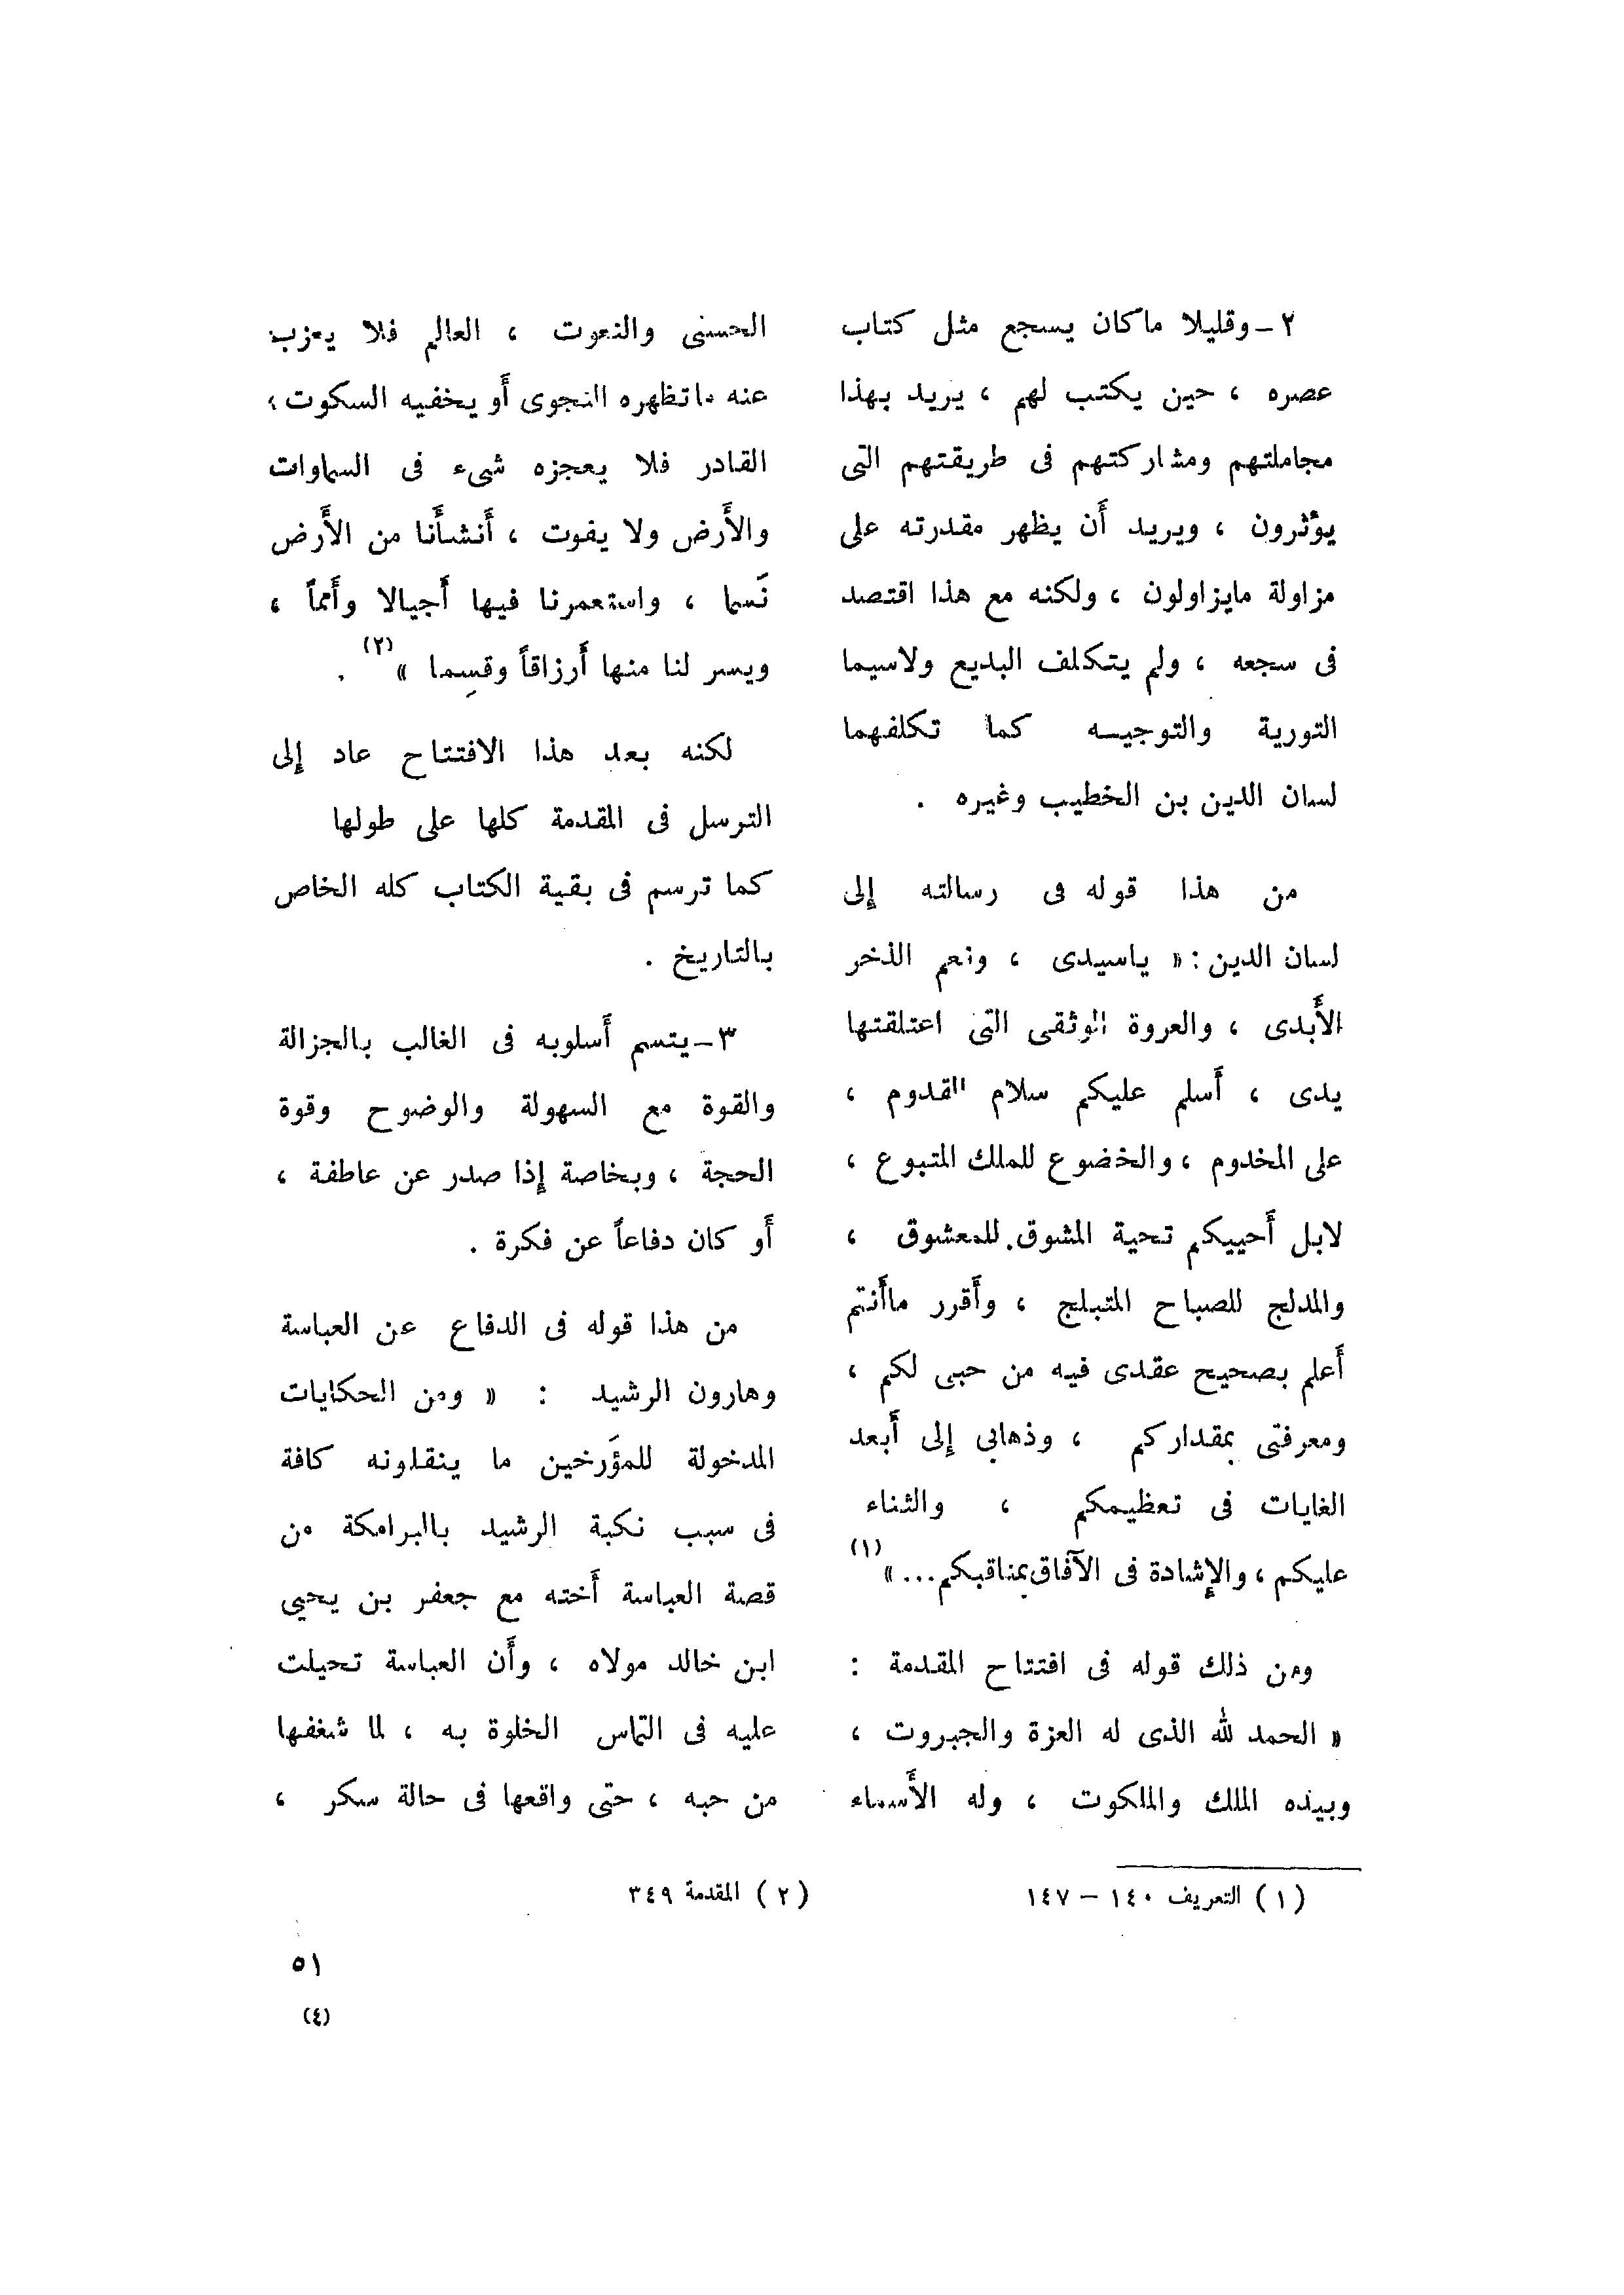 ٢ – وقليلا ماكان يسجع مثل كتاب
عصره ، حين يكتب لهم ، يريد بهذا
مجاملتهم ومشاركتهم فى طريقتهم التى
يؤثرون ، ويريد أن يظهر مقدرته على
مزاولة مايزاولون ، ولكنه مع هذا اقتصد
فى سجعه ، ولم يتكلف البديع ولاسيما
التورية والتوجيسه كما تكلفهما
لسان الدين بن الخطيب وغيره .
من هذا قوله فى رسالته إلى
لسان الدين : « ياسيدى ، ونعم الذخر
الأبدى ، والعروة الوثقى التى اعتلقتها
يدى ، أسلم عليكم سلام القدوم ،
على المخدوم ، والخضوع للملك المتبوع ،
لابل أحييكم تحية المشوق. للمعشوق ،
والمدلج للصباح المتبلج ، وأقرر ماأنتم
أعلم بصحيح عقدى فيه من حبى لكم ،
ومعرفتى بمقداركم ، وذهابى إلى أبعد
الغايات فى تعظيمكم ، والثناء
عليكم ، والإشادة فى الآفاق بمناقبكم ... » (١)
ومن ذلك قوله فى افتتاح المقدمة :
« الحمد لله الذى له العزة والجبروت ،
وبيده الملك والملكوت ، وله الأسماء
الحسنى والنعوت ، العالم فلا يعزب
عنه ماتظهره النجوى أو يخفيه السكوت ؛
القادر فلا يعجزه شىء فى السماوات
والأرض ولا يفوت ، أنشأنا من الأرض
نَسما ، واستعمرنا فيها أجيالا وأمماً ،
ويسر لنا منها أرزاقاً وقسِما » (٢) .
لكنه بعد هذا الافتتاح عاد إلى
الترسل فى المقدمة كلها على طولها
كما ترسم فى بقية الكتاب كله الخاص
بالتاريخ .
٣ – يتسم أسلوبه فى الغالب بالجزالة
والقوة مع السهولة والوضوح وقوة
الحجة ، وبخاصة إذا صدر عن عاطفة ،
أو كان دفاعاً عن فكرة .
من هذا قوله فى الدفاع عن العباسة
وهارون الرشيد : « ومن الحكايات
المدخولة للمؤَرخين ما ينقلونه كافة
فى سبب نكبة الرشيد باالبرامكة من
قصة العباسة أخته مع جعفر بن يحيى
ابن خالد مولاه ، وأن العباسة تحيلت
عليه فى التماس الخلوة به ، لما شغفها
من حبه ، حتى واقعها فى حالة سكر ،
(١) التعريف ١٤٠ – ١٤٧
(٢) المقدمة ٣٤٩
٥١
(٤)